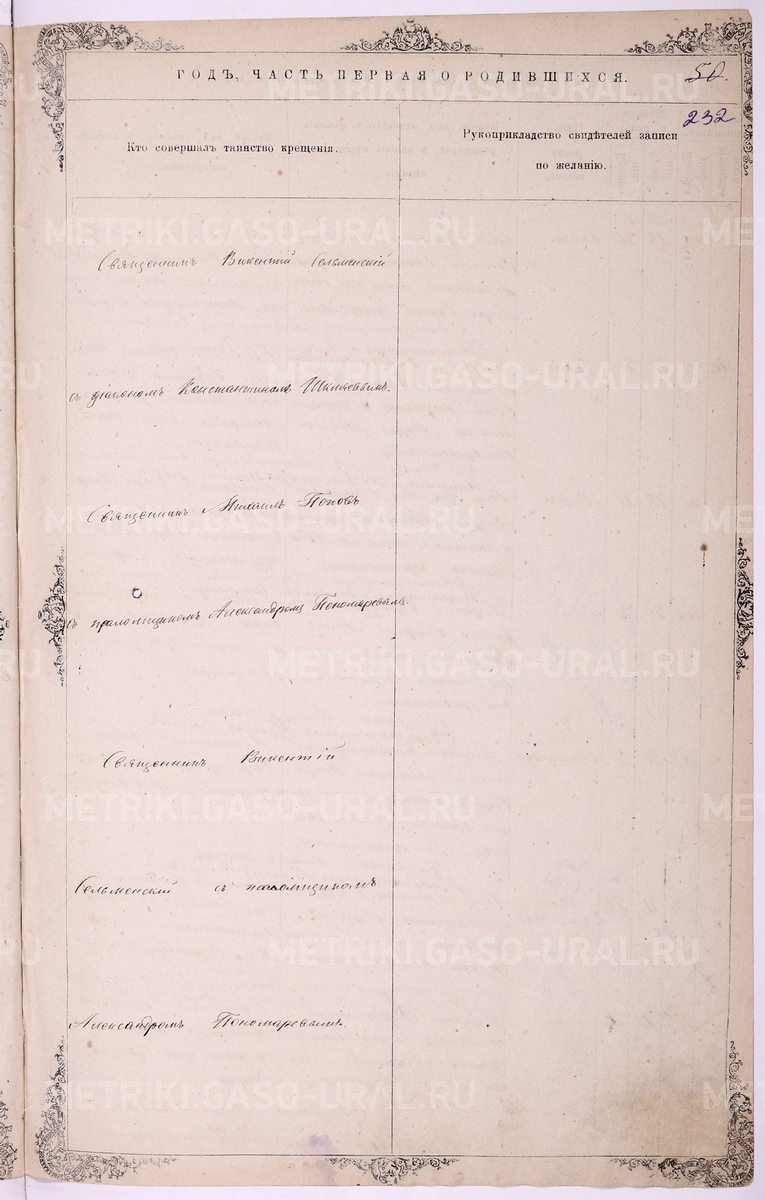 ГОДЪ, ЧАСТЬ ПЕРВАЯ О РОДИВШИХСЯ.
50.
232
Кто совершалъ таинство крещенія.
Рукоприкладство свидѣтелей записи
по желанію.
Священникъ Викентій Сельменскій
съ діакономъ Константиномъ Шкляевымъ.
Священникъ Михаилъ Поповъ
съ псаломщикомъ Александромъ Пономаревымъ.
Священникъ Викентій
Сельменскій съ псаломщикомъ
Александромъ Пономаревымъ.
METRIKI.GASO-URAL.RU